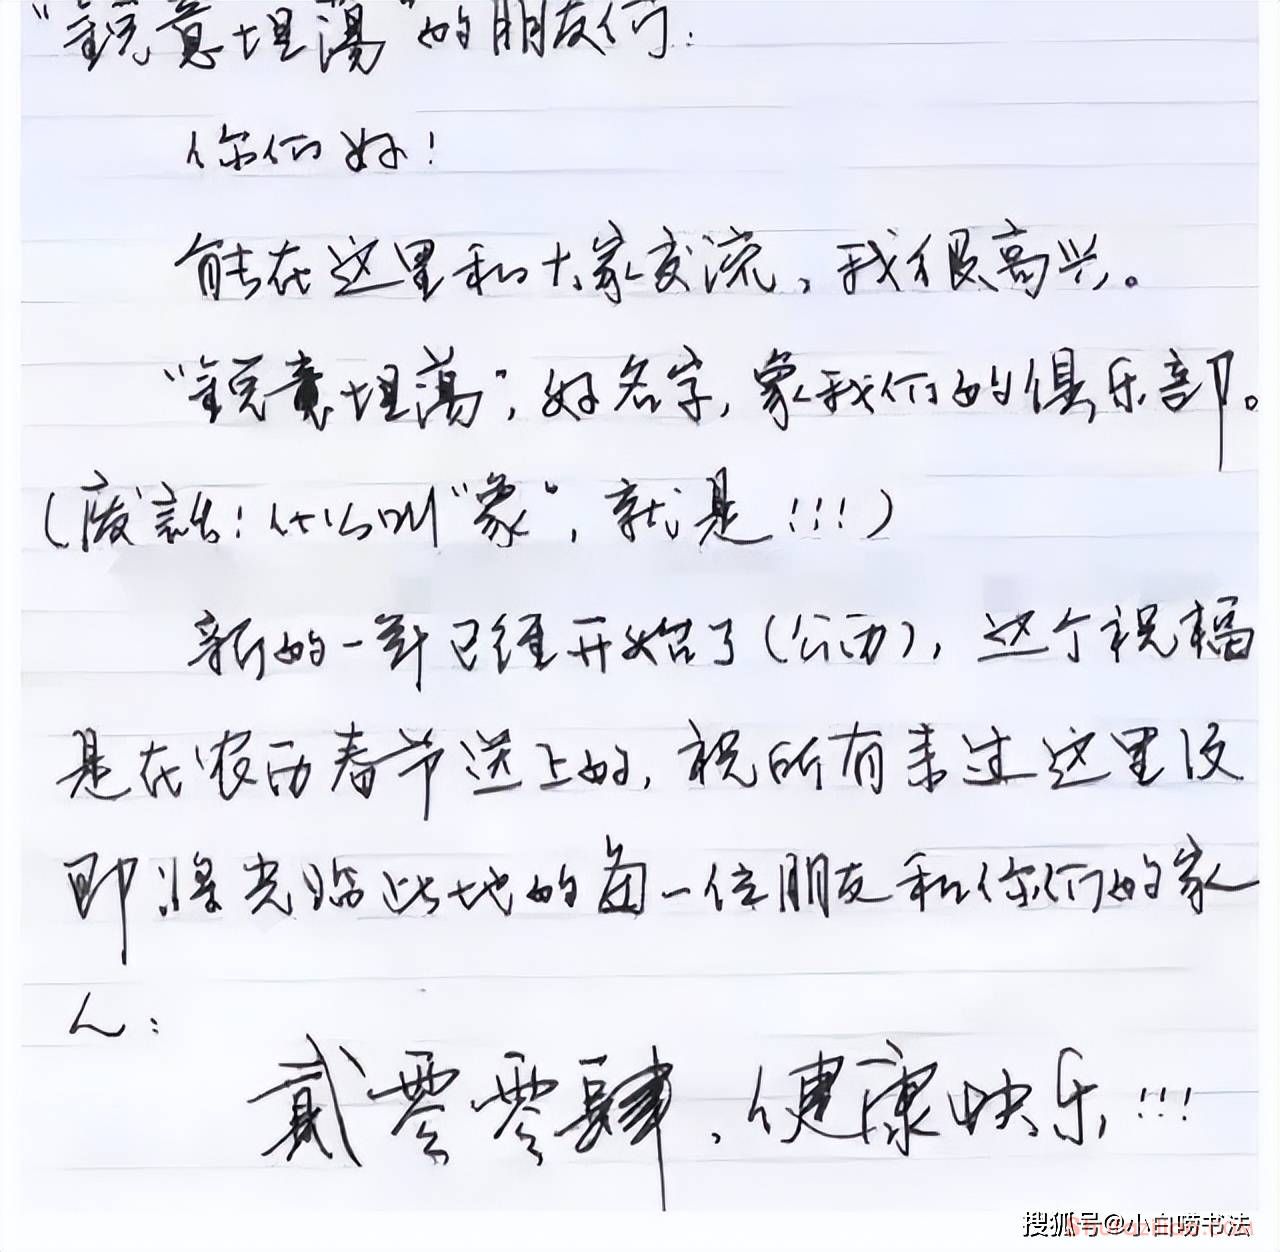 “锐意坦荡”的朋友们：
你们好！
能在这里和大家交流，我很高兴。
“锐意坦荡”，好名字，象我们的俱乐部。
（废话！什么叫“象”，就是！！！）
新的一年已经开始了（公历），这个祝福
是在农历春节送上的，祝所有来过这里及
即将光临此地的每一位朋友和你们的家
人：
贰零零肆，健康快乐！！！
搜狐号@小白唠书法